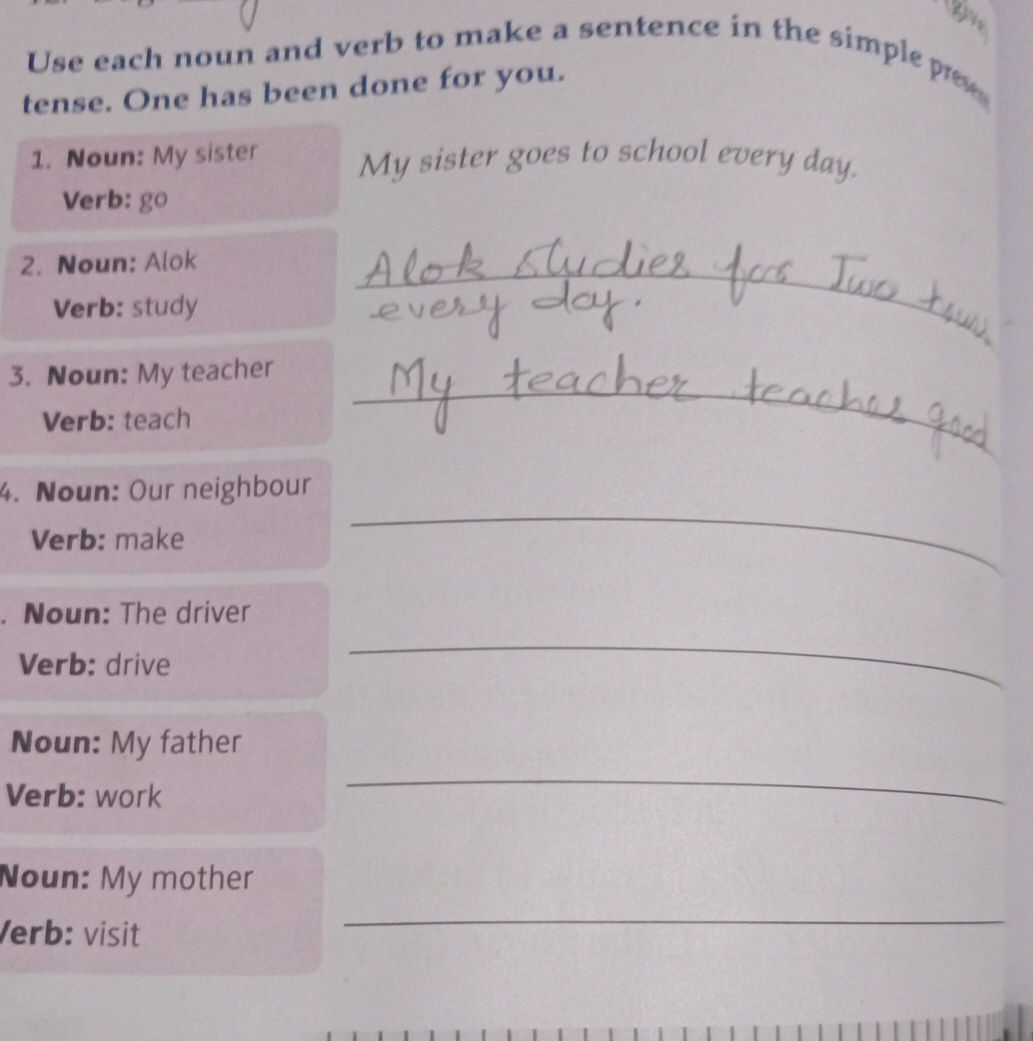 Use each noun and verb to make a sentence in the simple present
tense. One has been done for you.
1. Noun: My sister
Verb: go
My sister goes to school every day.
2. Noun: Alok
Verb: study
Alok studies for Two hours
every day.
3. Noun: My teacher
Verb: teach
My teacher teaches good
4. Noun: Our neighbour
Verb: make
. Noun: The driver
Verb: drive
Noun: My father
Verb: work
Noun: My mother
Verb: visit